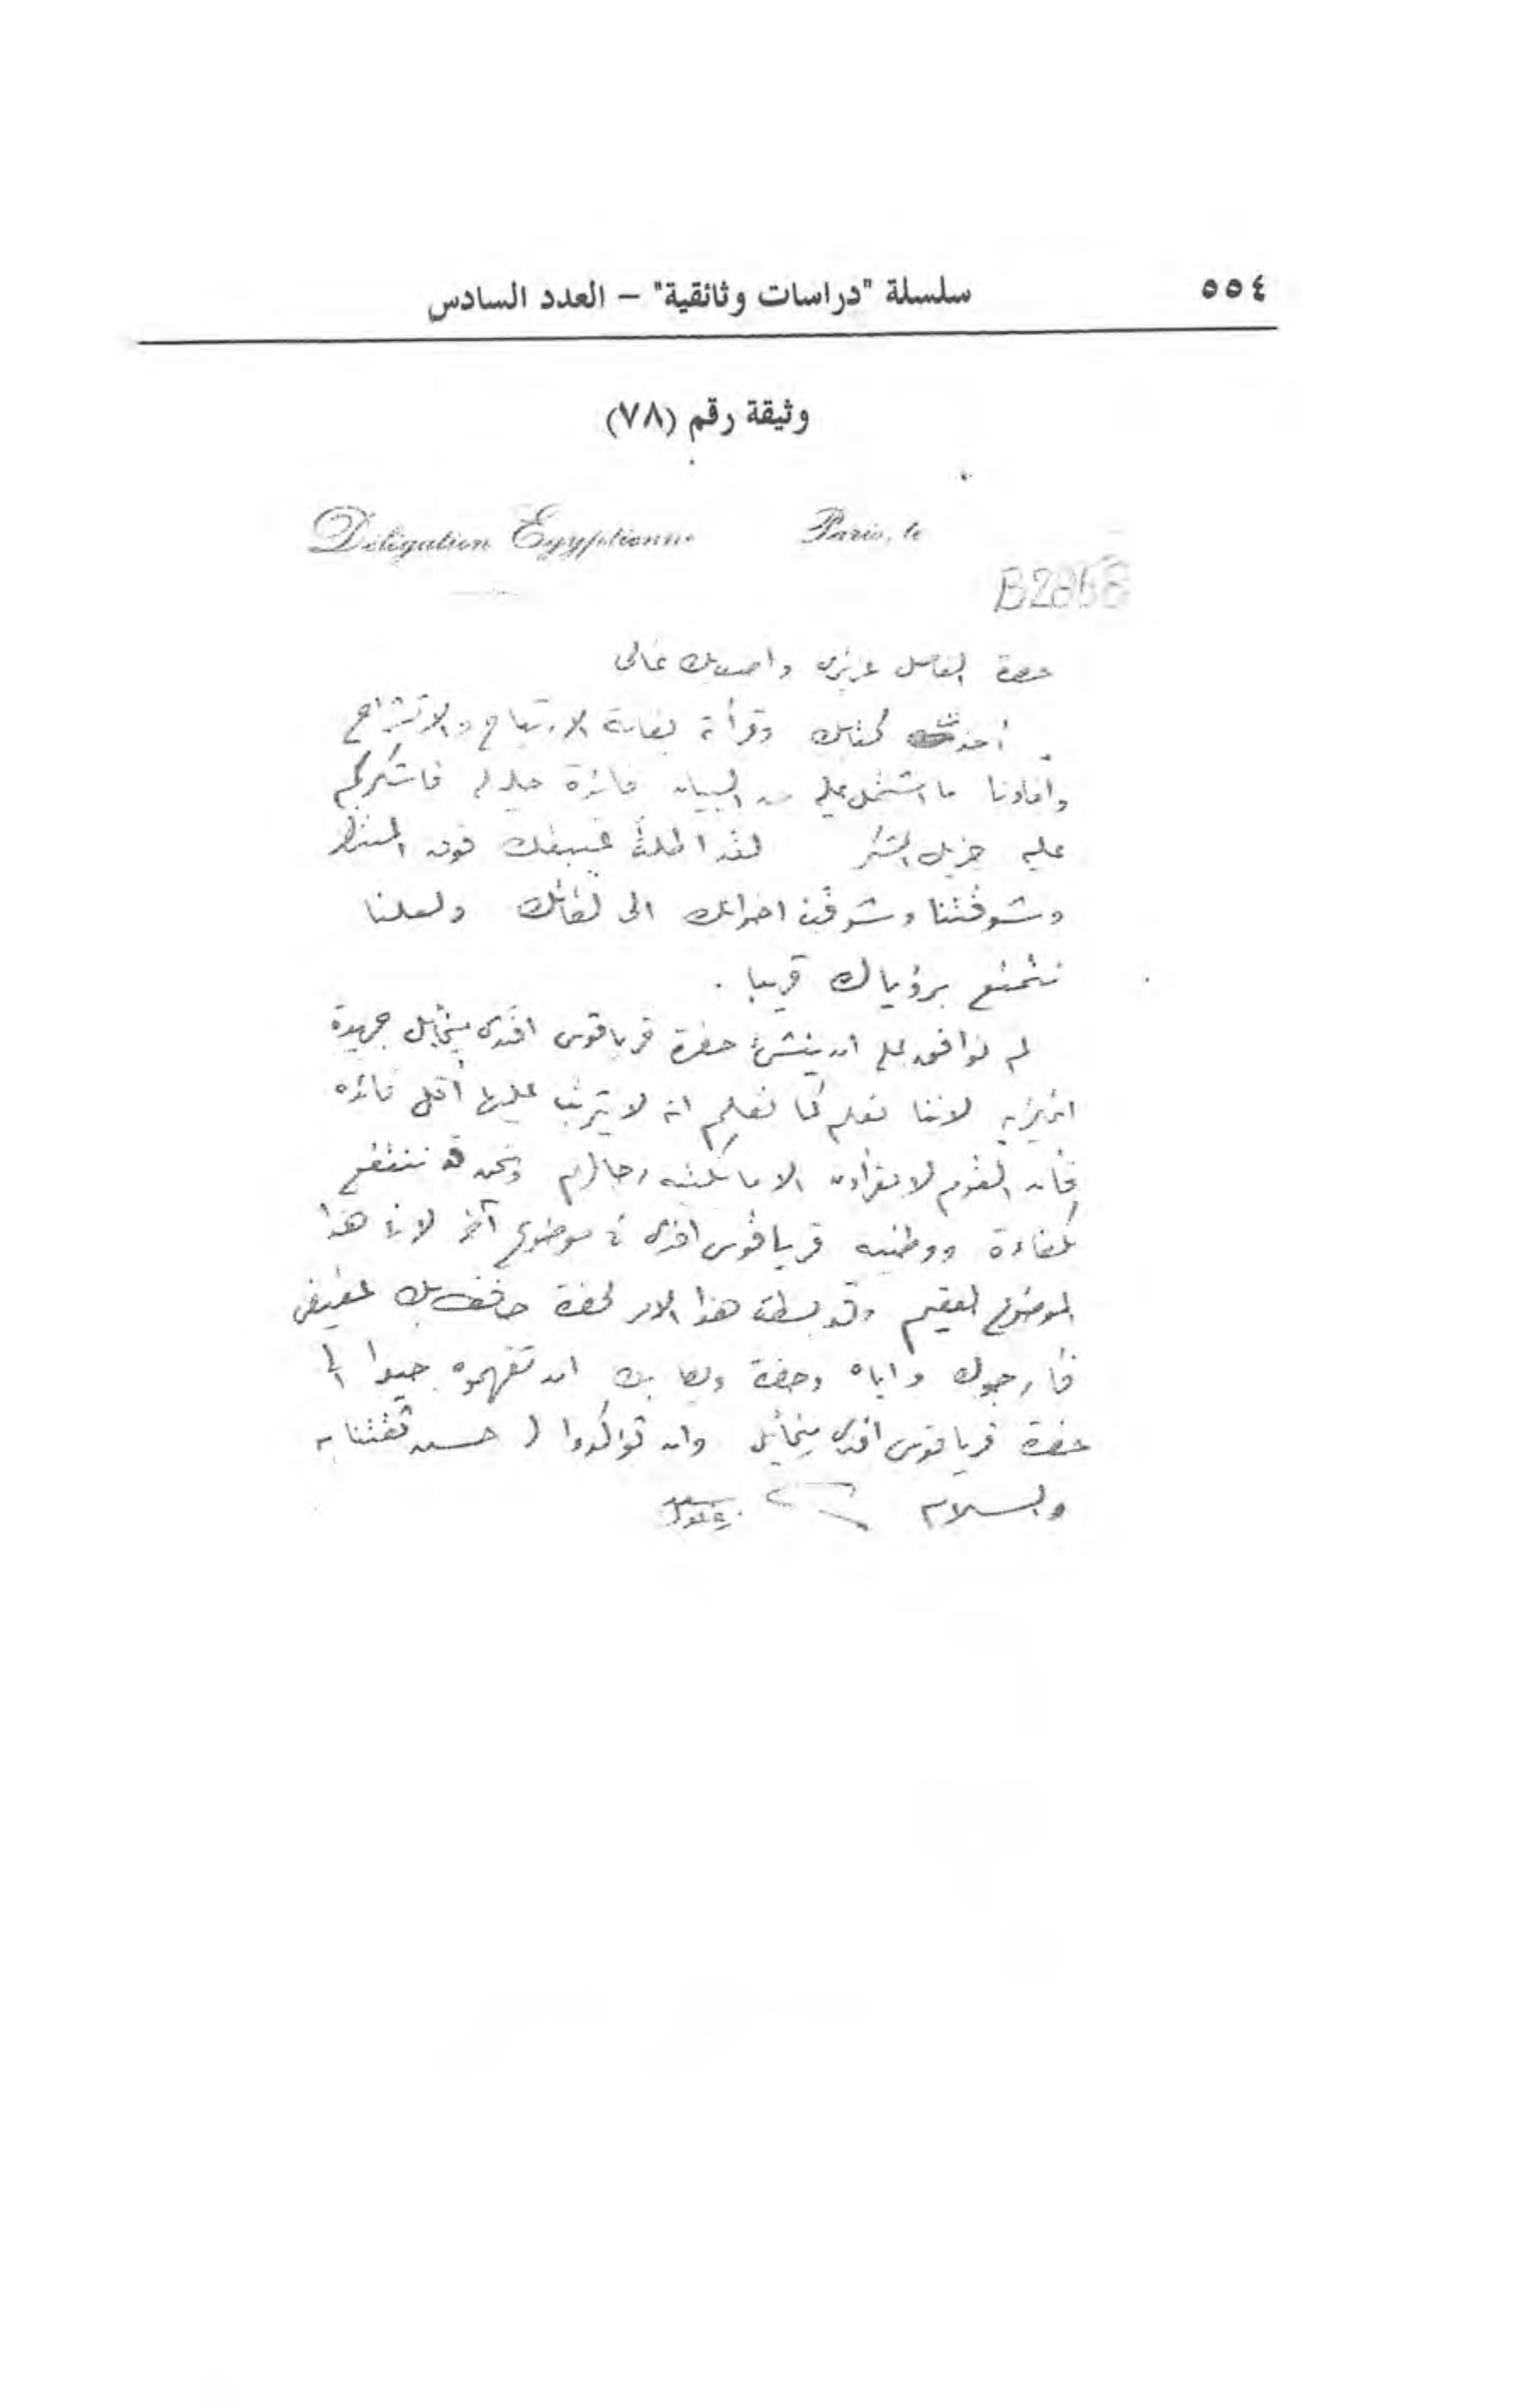 ٥٥٤
سلسلة "دراسات وثائقية" – العدد السادس
وثيقة رقم (٧٨)
Délégation Egyptienne
Paris, le
حضرة الفاضل عزيزى واصف بك غالى
أخذت كتابك وقرأته بغاية الارتياح والانشراح
وأفادنا ما اشتمل عليه من البيان فائدة جليلة فاشكركم
عليه جزيل الشكر لقد اطلت غيبتك فوق المنتظر
وشوقتنا وشوقت اخوانك الى لقائك ولعلنا
نتمتع برؤياك قريبا .
لم نوافق على ان ينشئ حضرة قرياقوس افندى ميخائيل جريدة
انجليزيه لاننا نعلم كما تعلم انه لا يترتب عليها أقل فائده
فان القوم لا يقرأون الا ما تكتبه رجالهم ونحن قد ننتفع
بكفاءة ووطنيه قرياقوس افندى فى موضوع آخر لان هذا
الموضوع العقيم وقد بسطت هذا الامر لحضرة حافظ بك عفيفى
فأرجوك واياه وحضرة ويصا بك ان تفهموه جيدا الى
حضرة قرياقوس افندى ميخائيل وان تؤكدوا له حسن ثقتنا به
والسلام
سعد زغلول